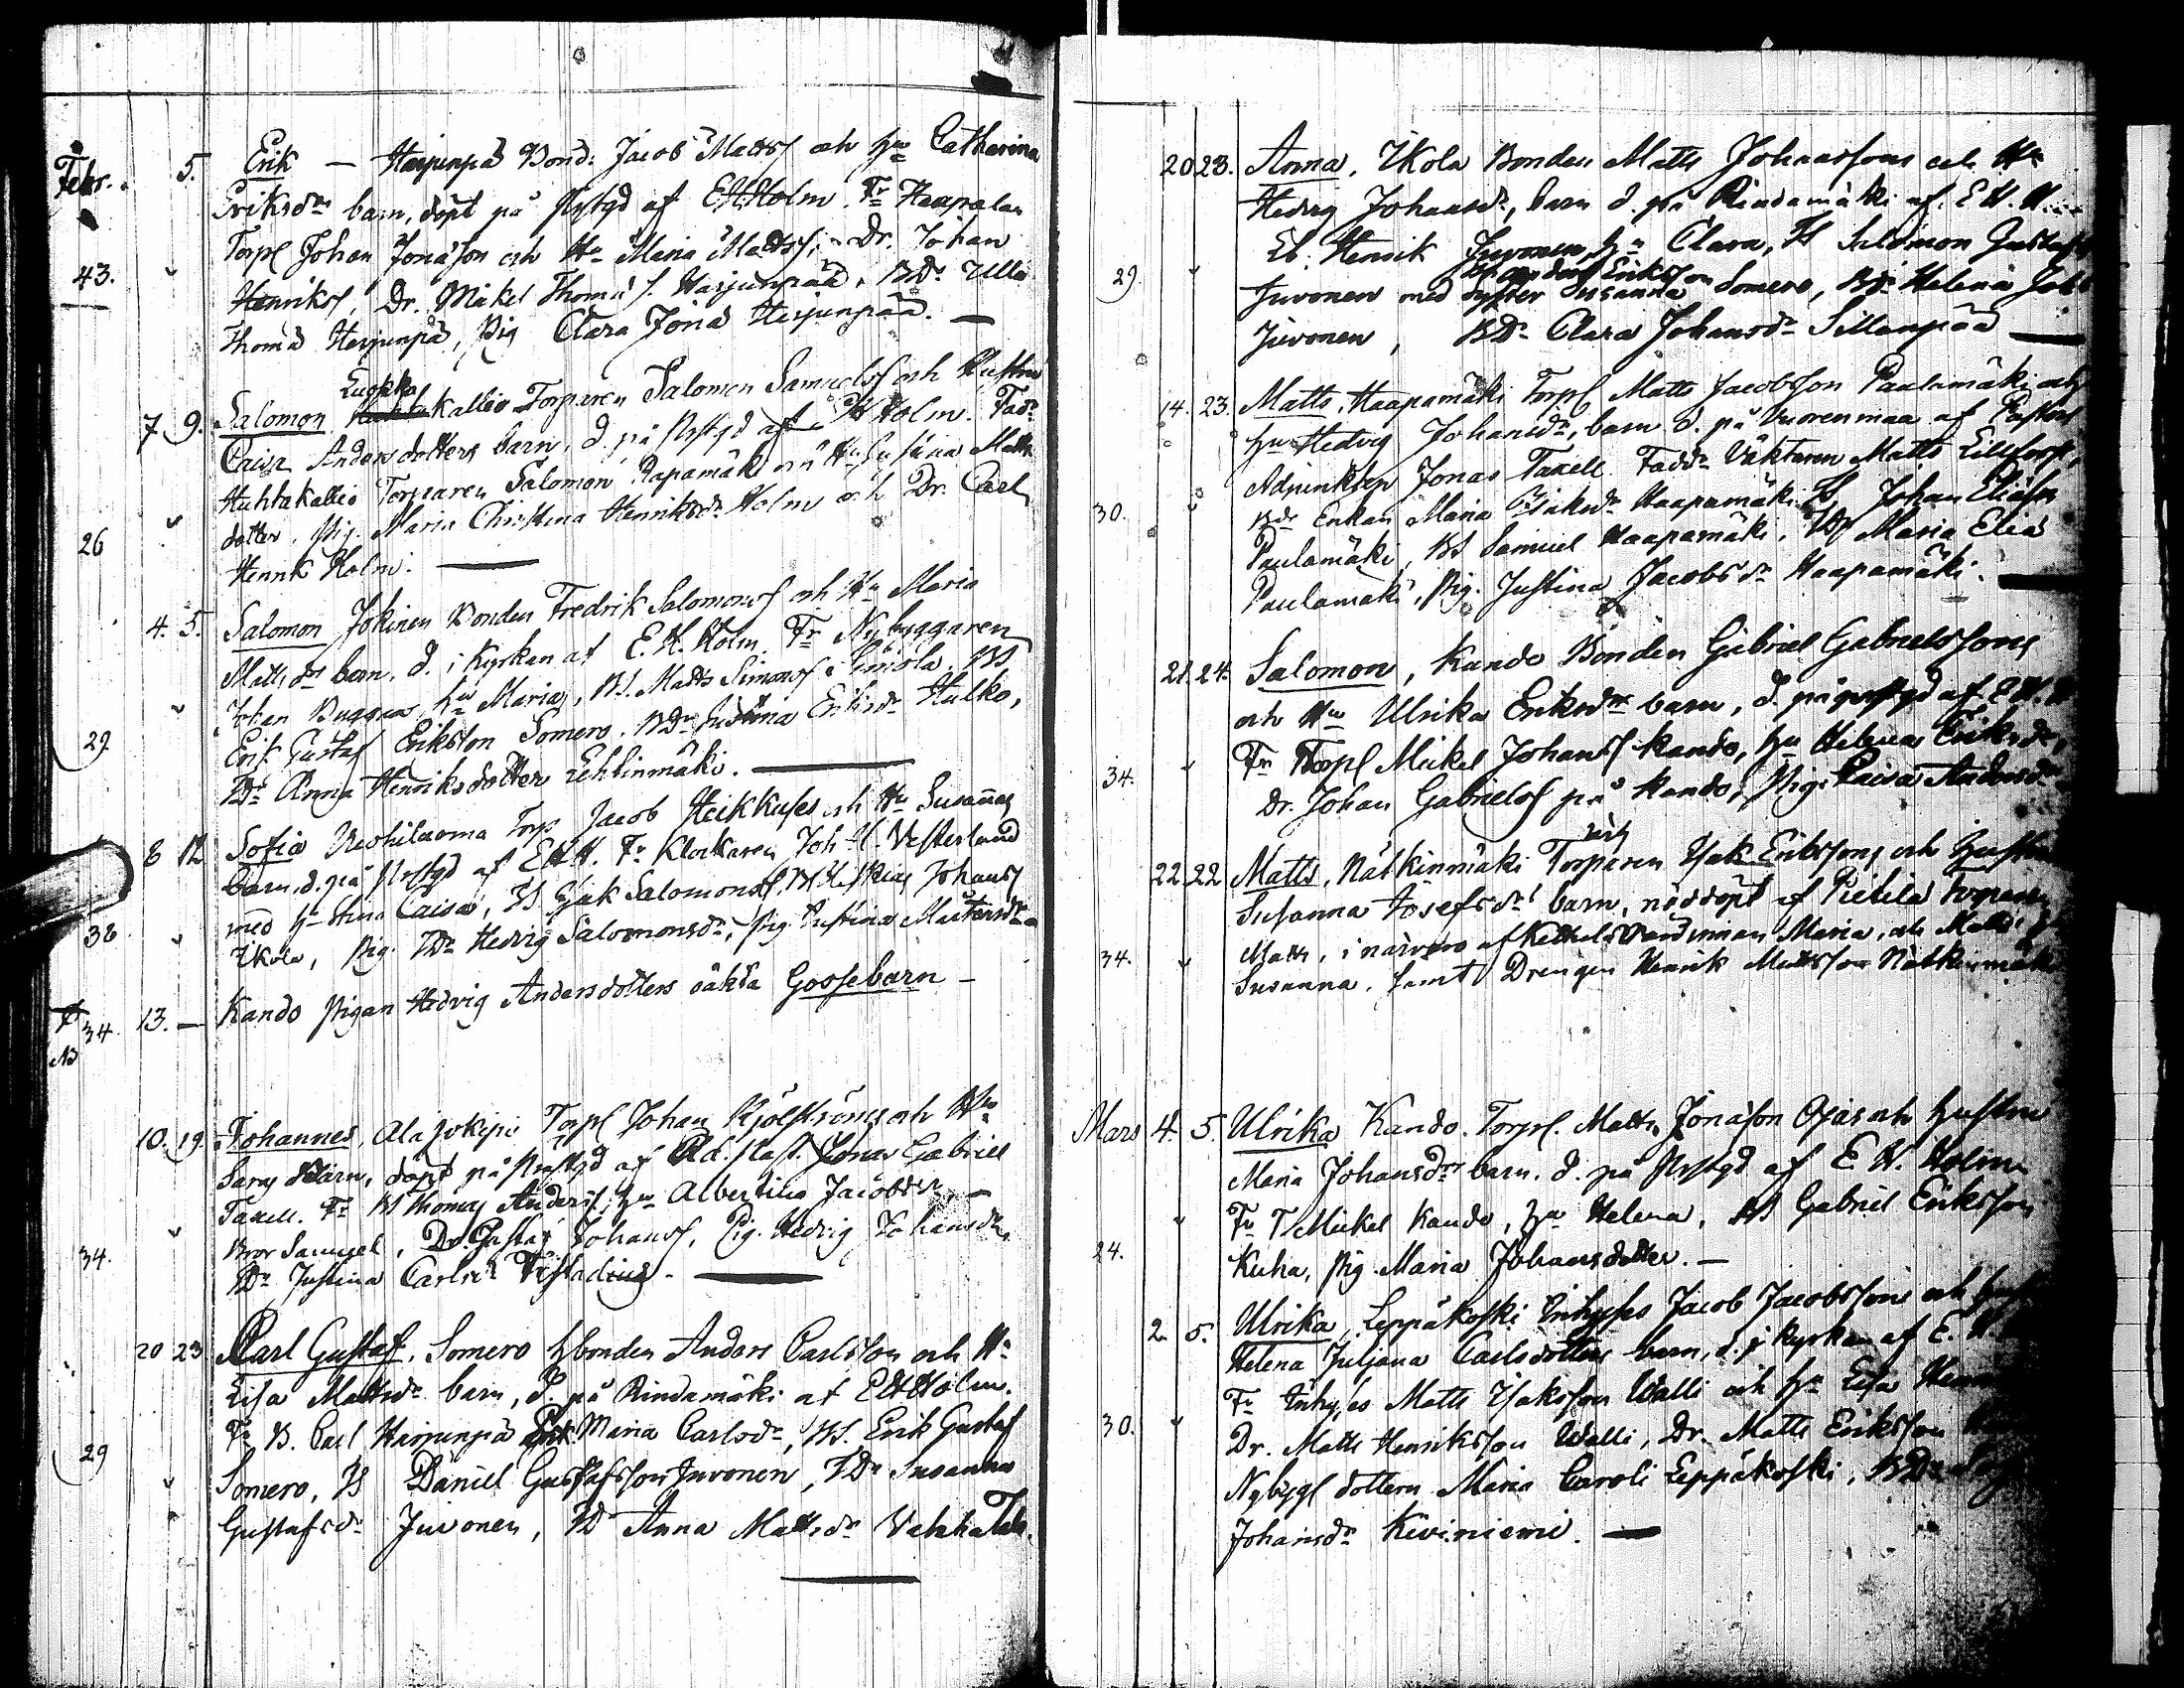 Febr. 5. Erik — Harjunpä Bond: Jacob Matts och Hu Catharina
Eriksdrs barn, döpt på Prstgd af EHHolm. Fr Haapalan
Torp Johan Jonasson och Hu Maria Matts, Dr. Johan
43. Henriks, Dr. Mikel Thomas. Harjunpää, BDr Ulla
Thomä Harjunpä, Pig Clara Jona Harjunpää. —
Luopka
7 9. Salomon kallio Torparen Salomon Samuels och Hustru
Caisa Andersdotters barn, d. på Prstgd af Holm. Fadr
Huhtakallio Torparen Salomon Rapamäk och Hu Susanna Matts
dotter, Pig. Maria Christina Henriksdr Holm och Dr. Carl
26 Henrik Holm. —
4. 5. Salomon Jokinen Bonden Fredrik Salomons och Hu Maria
Mattsdrs barn, d. i Kyrkan af E.H.Holm. Fr Nybyggaren
Johan Buggas Hu Maria, BS. Matts Simons BS
29 Erik Gustaf Eriksson Somero. BDr Justina Eriksdr Hulko,
BDr Anna Henriksdotter Lehtinmäki. —
8 12 Sofia Torp Jacob Heikkuses och Hu Susannas
barn, d. på Prstgd af EHH. Fr Klockaren Joh. Vesterlund
med Hu Stina Caisa, Isak Salomons, Johans
38 Ikola, Pig. Hedvig Salomonsdr, Pig. Justina Mårtensdr
34. 13. — Kando Pigan Hedvig Andersdotters oäkta Gossebarn —
NB
10. 19. Johannes, Alajokipi Torp Johan Kjölströms och Hu
Saras Barn, döpt på Prstgd af Ad. Past. Jonas Gabriel
Taxell. Fr BS Thomas Anders, Hu Albertina Jacobsdr, —
Bror Samuel, Dr. Gustaf Johans, Pig. Hedvig Johansdr,
34. BDr Justina Carlsdr —
20 23 Carl Gustaf, Somero Hbonden Anders Carlsson och Hu
Lisa Mattsdr barn, d. på Rindamäki af EHHolm.
Fr B. Carl Harjunpä Maria Carlsdr, BS. Erik Gustaf
29 Somero, BS Daniel Gustafsson Juvonen, BDr Susanna
Gustafsdr Juvonen, BD Anna Mattsdr
20 23. Anna, Ikola Bonden Matts Johanssons och Hu
Hedvig Johansdr, barn d. på Rindamäki af. E.H.H.
Eb. Henrik Juvonen, Hu Clara, BS Salomon Gustafs
Eriksson
29. Juvonen med syster Susanna Somero, BDr Helena Joh
Juvonen, BDr Clara Johansdr Sillanpää —
14. 23. Matts, Haapamäki Torp Matts Jacobsson Paulamäki och
Hu Hedvig Johansdr, barn d. på Vuorenmaa af Pastors
Adjunkten Jonas Taxell. Faddr Väktaren Matts Lilltorp,
30. Enkan Maria Isaksdr Haapamäki, Johan Eliasson
Paulamäki, BS Samuel Haapamäki, Maria Elia
Paulamäki, Pig. Justina Jacobsdr Haapamäki. —
21. 24. Salomon, Kando Bonden Gabriel Gabrielssons
och Hu Ulrika Eriksdrs barn, d. på prstgd af E.H.H
34. Fr Torp Mickel Johans Kando, Hu Helena Eriksdr,
Dr. Johan Gabriels på Kando, Pig. Caisa Andersdr
22. 22 Matts, Nätkinmäki Torparen Isak Erikssons och Hustru
Susanna Josefsdrs barn, nöddöpt af Pietilä Torparen
34. Matts, i närvaro af Kettula Värdinnan Maria, och Matts
Susanna, samt Drengen Henrik Mattsson Nätkinmäki
Mars 4. 5. Ulrika Kando. Torp. Matts Jonasson Ojas och Hustru
Maria Johansdrs barn. d. på Prstgd af E.H.Holm
Fr T Mickel Kando, Hu Helena, BS Gabriel Eriksson
24. Kuha, Pig. Maria Johansdotter. —
2. 5. Ulrika, Leppäkoski Inhyses Jacob Jacobssons och
Helena Juliana Carlsdotters barn, d. i Kyrkan af E.H.
Fr Inhyses Matts Isaksson Walli och Hu Lisa
30. Dr. Matts Henriksson Walli, Dr. Matts Eriksson
Nybygs dottern Maria Caroli Leppäkoski, BDr
Johansdr Kiviniemi. —